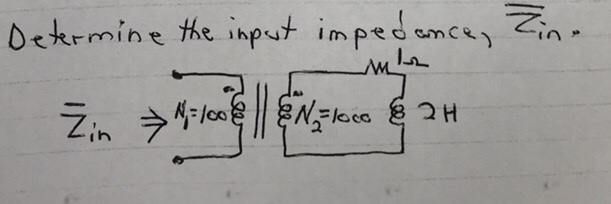 Determine the input impedance, Z̅in.
1Ω
Z̅in ⇒ N₁=100 N₂=1000 2H